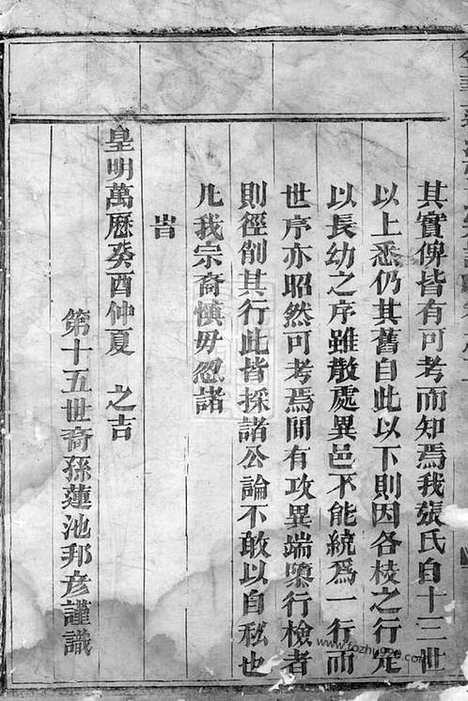 其實俾皆有可考而知焉我張氏自十三世
以上悉仍其舊自此以下則因各枝之行定
以長幼之序雖散處異邑不能統爲一行而
世序亦昭然可考焉間有攻異端隳行檢者
則徑削其行此皆採諸公論不敢以自私也
凡我宗裔慎毋忽諸
旹
皇明萬曆癸酉仲夏 之吉
第十五世裔孫蓮池邦彥謹識
www.tozhu920.com